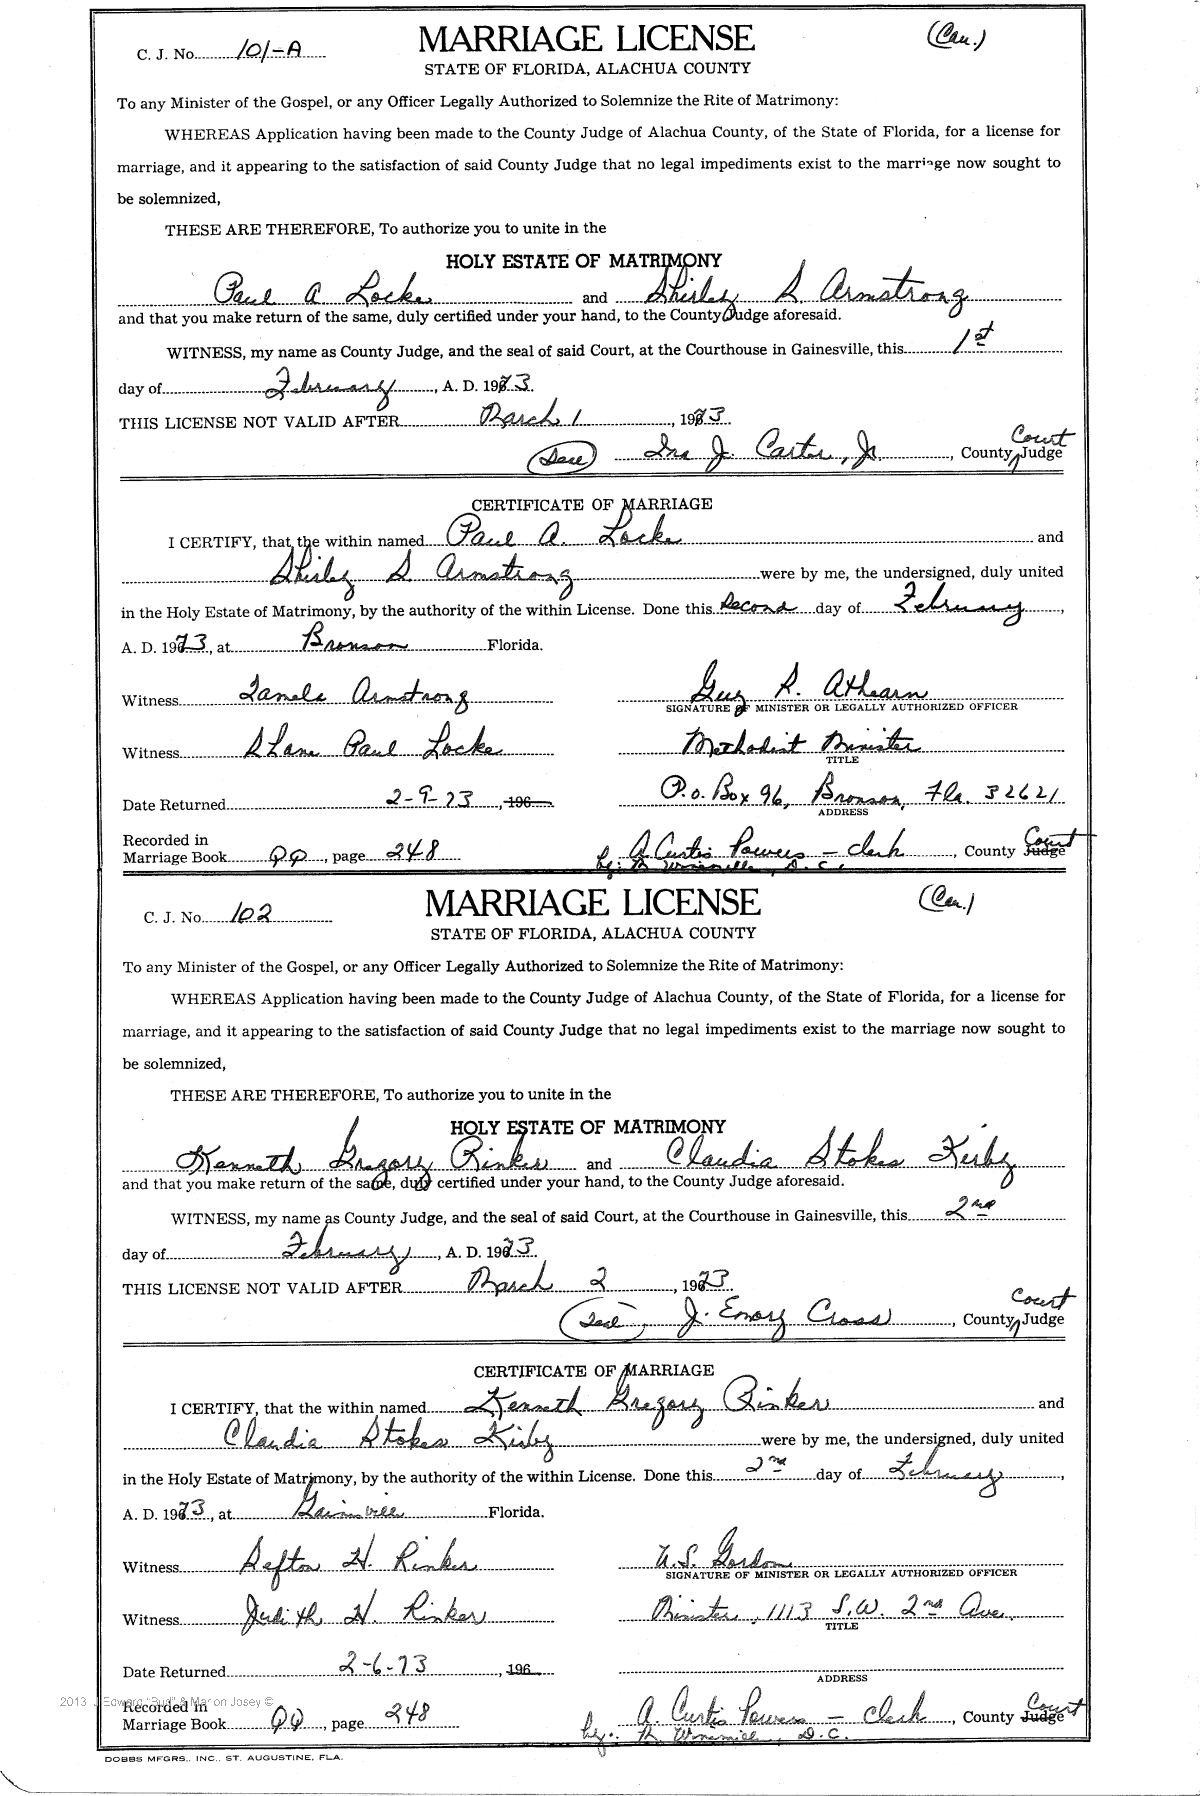 C. J. No. 101-A
MARRIAGE LICENSE
(Cau.)
STATE OF FLORIDA, ALACHUA COUNTY
To any Minister of the Gospel, or any Officer Legally Authorized to Solemnize the Rite of Matrimony:
WHEREAS Application having been made to the County Judge of Alachua County, of the State of Florida, for a license for
marriage, and it appearing to the satisfaction of said County Judge that no legal impediments exist to the marriage now sought to
be solemnized,
THESE ARE THEREFORE, To authorize you to unite in the
HOLY ESTATE OF MATRIMONY
Paul A Locke and Shirley S. Armstrong
and that you make return of the same, duly certified under your hand, to the County Judge aforesaid.
WITNESS, my name as County Judge, and the seal of said Court, at the Courthouse in Gainesville, this 1st
day of February, A. D. 1973.
THIS LICENSE NOT VALID AFTER March 1, 1973.
(Seal) Ira J. Carter, Jr., County Court Judge
CERTIFICATE OF MARRIAGE
I CERTIFY, that the within named Paul A. Locke and
Shirley S Armstrong were by me, the undersigned, duly united
in the Holy Estate of Matrimony, by the authority of the within License. Done this second day of February,
A. D. 1973, at Bronson Florida.
Witness Armstrong Guy R. Athearn
SIGNATURE OF MINISTER OR LEGALLY AUTHORIZED OFFICER
Witness Shane Paul Locke Methodist Minister
TITLE
Date Returned 2-9-73, 196 P.O. Box 96, Bronson, Fla. 32621
ADDRESS
Recorded in
Marriage Book QQ, page 248 A. Curtis Powers - Clerk, County Court Judge
by: D.C.
C. J. No. 102
MARRIAGE LICENSE
(Cau.)
STATE OF FLORIDA, ALACHUA COUNTY
To any Minister of the Gospel, or any Officer Legally Authorized to Solemnize the Rite of Matrimony:
WHEREAS Application having been made to the County Judge of Alachua County, of the State of Florida, for a license for
marriage, and it appearing to the satisfaction of said County Judge that no legal impediments exist to the marriage now sought to
be solemnized,
THESE ARE THEREFORE, To authorize you to unite in the
HOLY ESTATE OF MATRIMONY
Kenneth Gregory Rinker and Claudia Stokes Kirby
and that you make return of the same, duly certified under your hand, to the County Judge aforesaid.
WITNESS, my name as County Judge, and the seal of said Court, at the Courthouse in Gainesville, this 2nd
day of February, A. D. 1973.
THIS LICENSE NOT VALID AFTER March 2, 1973.
(Seal) J. Emory Cross, County Court Judge
CERTIFICATE OF MARRIAGE
I CERTIFY, that the within named Kenneth Gregory Rinker and
Claudia Stokes Kirby were by me, the undersigned, duly united
in the Holy Estate of Matrimony, by the authority of the within License. Done this 2nd day of February,
A. D. 1973, at Gainsville Florida.
Witness Sefton H. Rinker U.S. Gordon
SIGNATURE OF MINISTER OR LEGALLY AUTHORIZED OFFICER
Witness Judith H. Rinker Minister, 1113 S.W. 2nd Ave.
TITLE
Date Returned 2-6-73, 196
ADDRESS
2013 J Edward "Bud" & Marion Josey ©
Recorded in
Marriage Book QQ, page 248 A. Curtis Powers - Clerk, County Court Judge
by: D.C.
DOBBS MFGRS., INC., ST. AUGUSTINE, FLA.